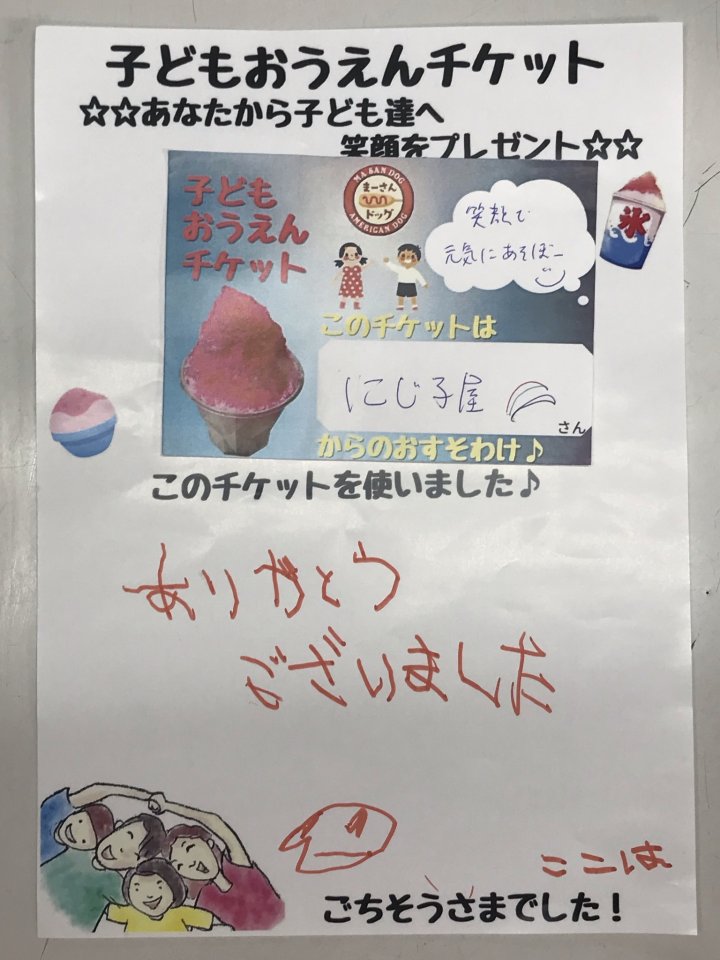 子どもおうえんチケット
☆☆あなたから子ども達へ
笑顔をプレゼント☆☆
子ども
おうえん
チケット
MA SAN DOG
まーさん
ドッグ
AMERICAN DOG
笑顔で
元気にあそぼー
氷
このチケットは
にじ子屋
さん
からのおすそわけ♪
このチケットを使いました♪
ありがとう
ございました
ごちそうさまでした！